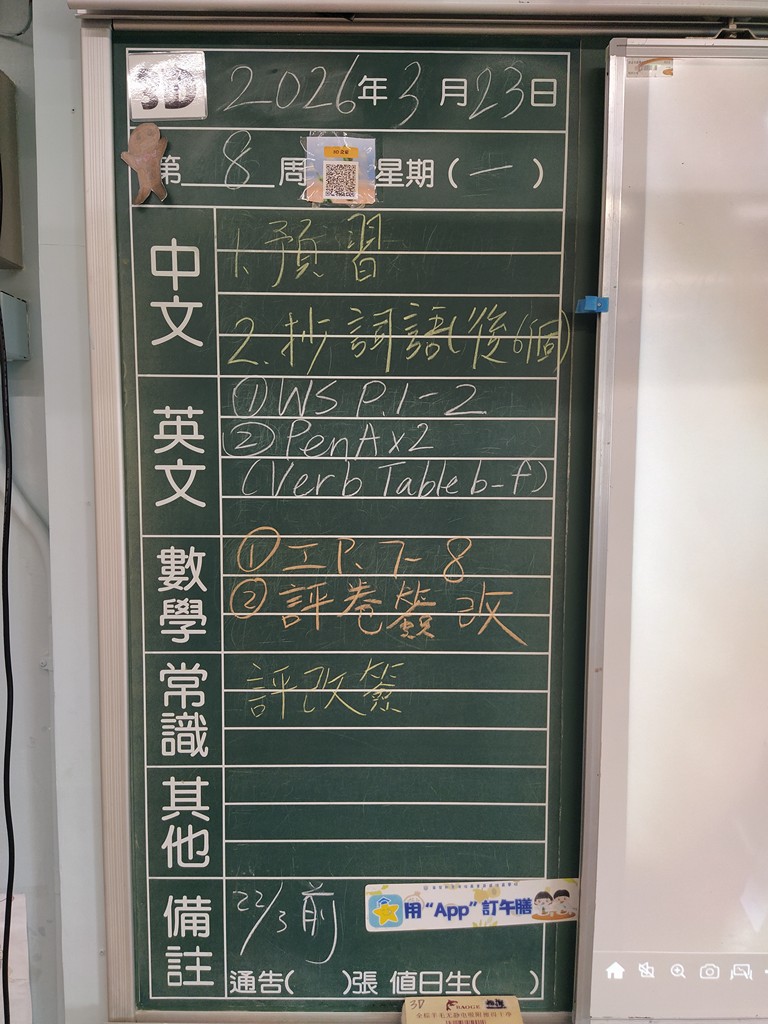 3D 2026年3月23日
第8周 星期(一)
中文
1. 預習
2. 抄詞語(後6個)
英文
① WS P.1-2
② PenA x2
(Verb Table b-f)
數學
① 工 P. 7-8
② 評卷簽改
常識
評改簽
其他
備註
22/3 前
用 “App” 訂午膳
通告( )張 值日生( )
3D